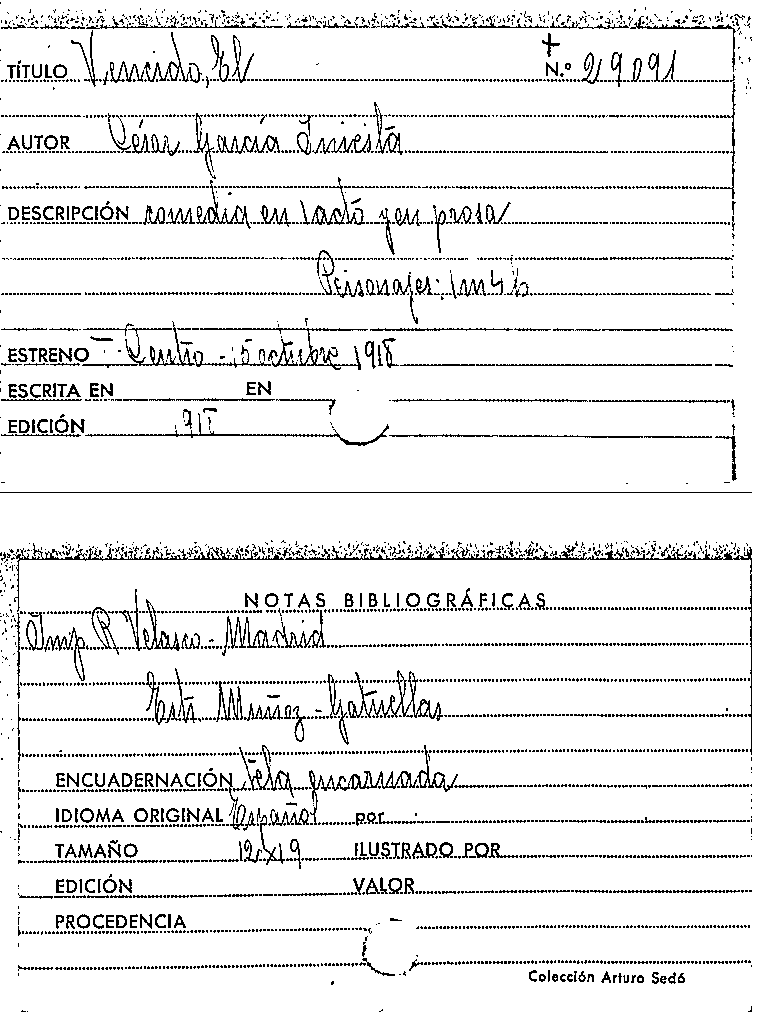 TÍTULO Vencido, El
+
N.º 29091
AUTOR César García Iniesta
DESCRIPCIÓN comedia en 1 acto y en prosa
Personajes: 1m 4h
ESTRENO T. Centro - 15 octubre 1918
ESCRITA EN EN
EDICIÓN 1918
NOTAS BIBLIOGRÁFICAS
Imp R Velasco - Madrid
Muñoz -
ENCUADERNACIÓN tela encarnada
IDIOMA ORIGINAL Español por
TAMAÑO 12x19 ILUSTRADO POR
EDICIÓN VALOR
PROCEDENCIA
Colección Arturo Sedó